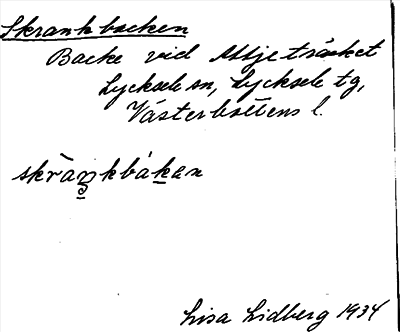 Skrankbacken
Backe vid Attjeträsket
Lycksele sn, Lycksele tg,
Västerbottens l.
skràŋkbákan
Lisa Lidberg 1934